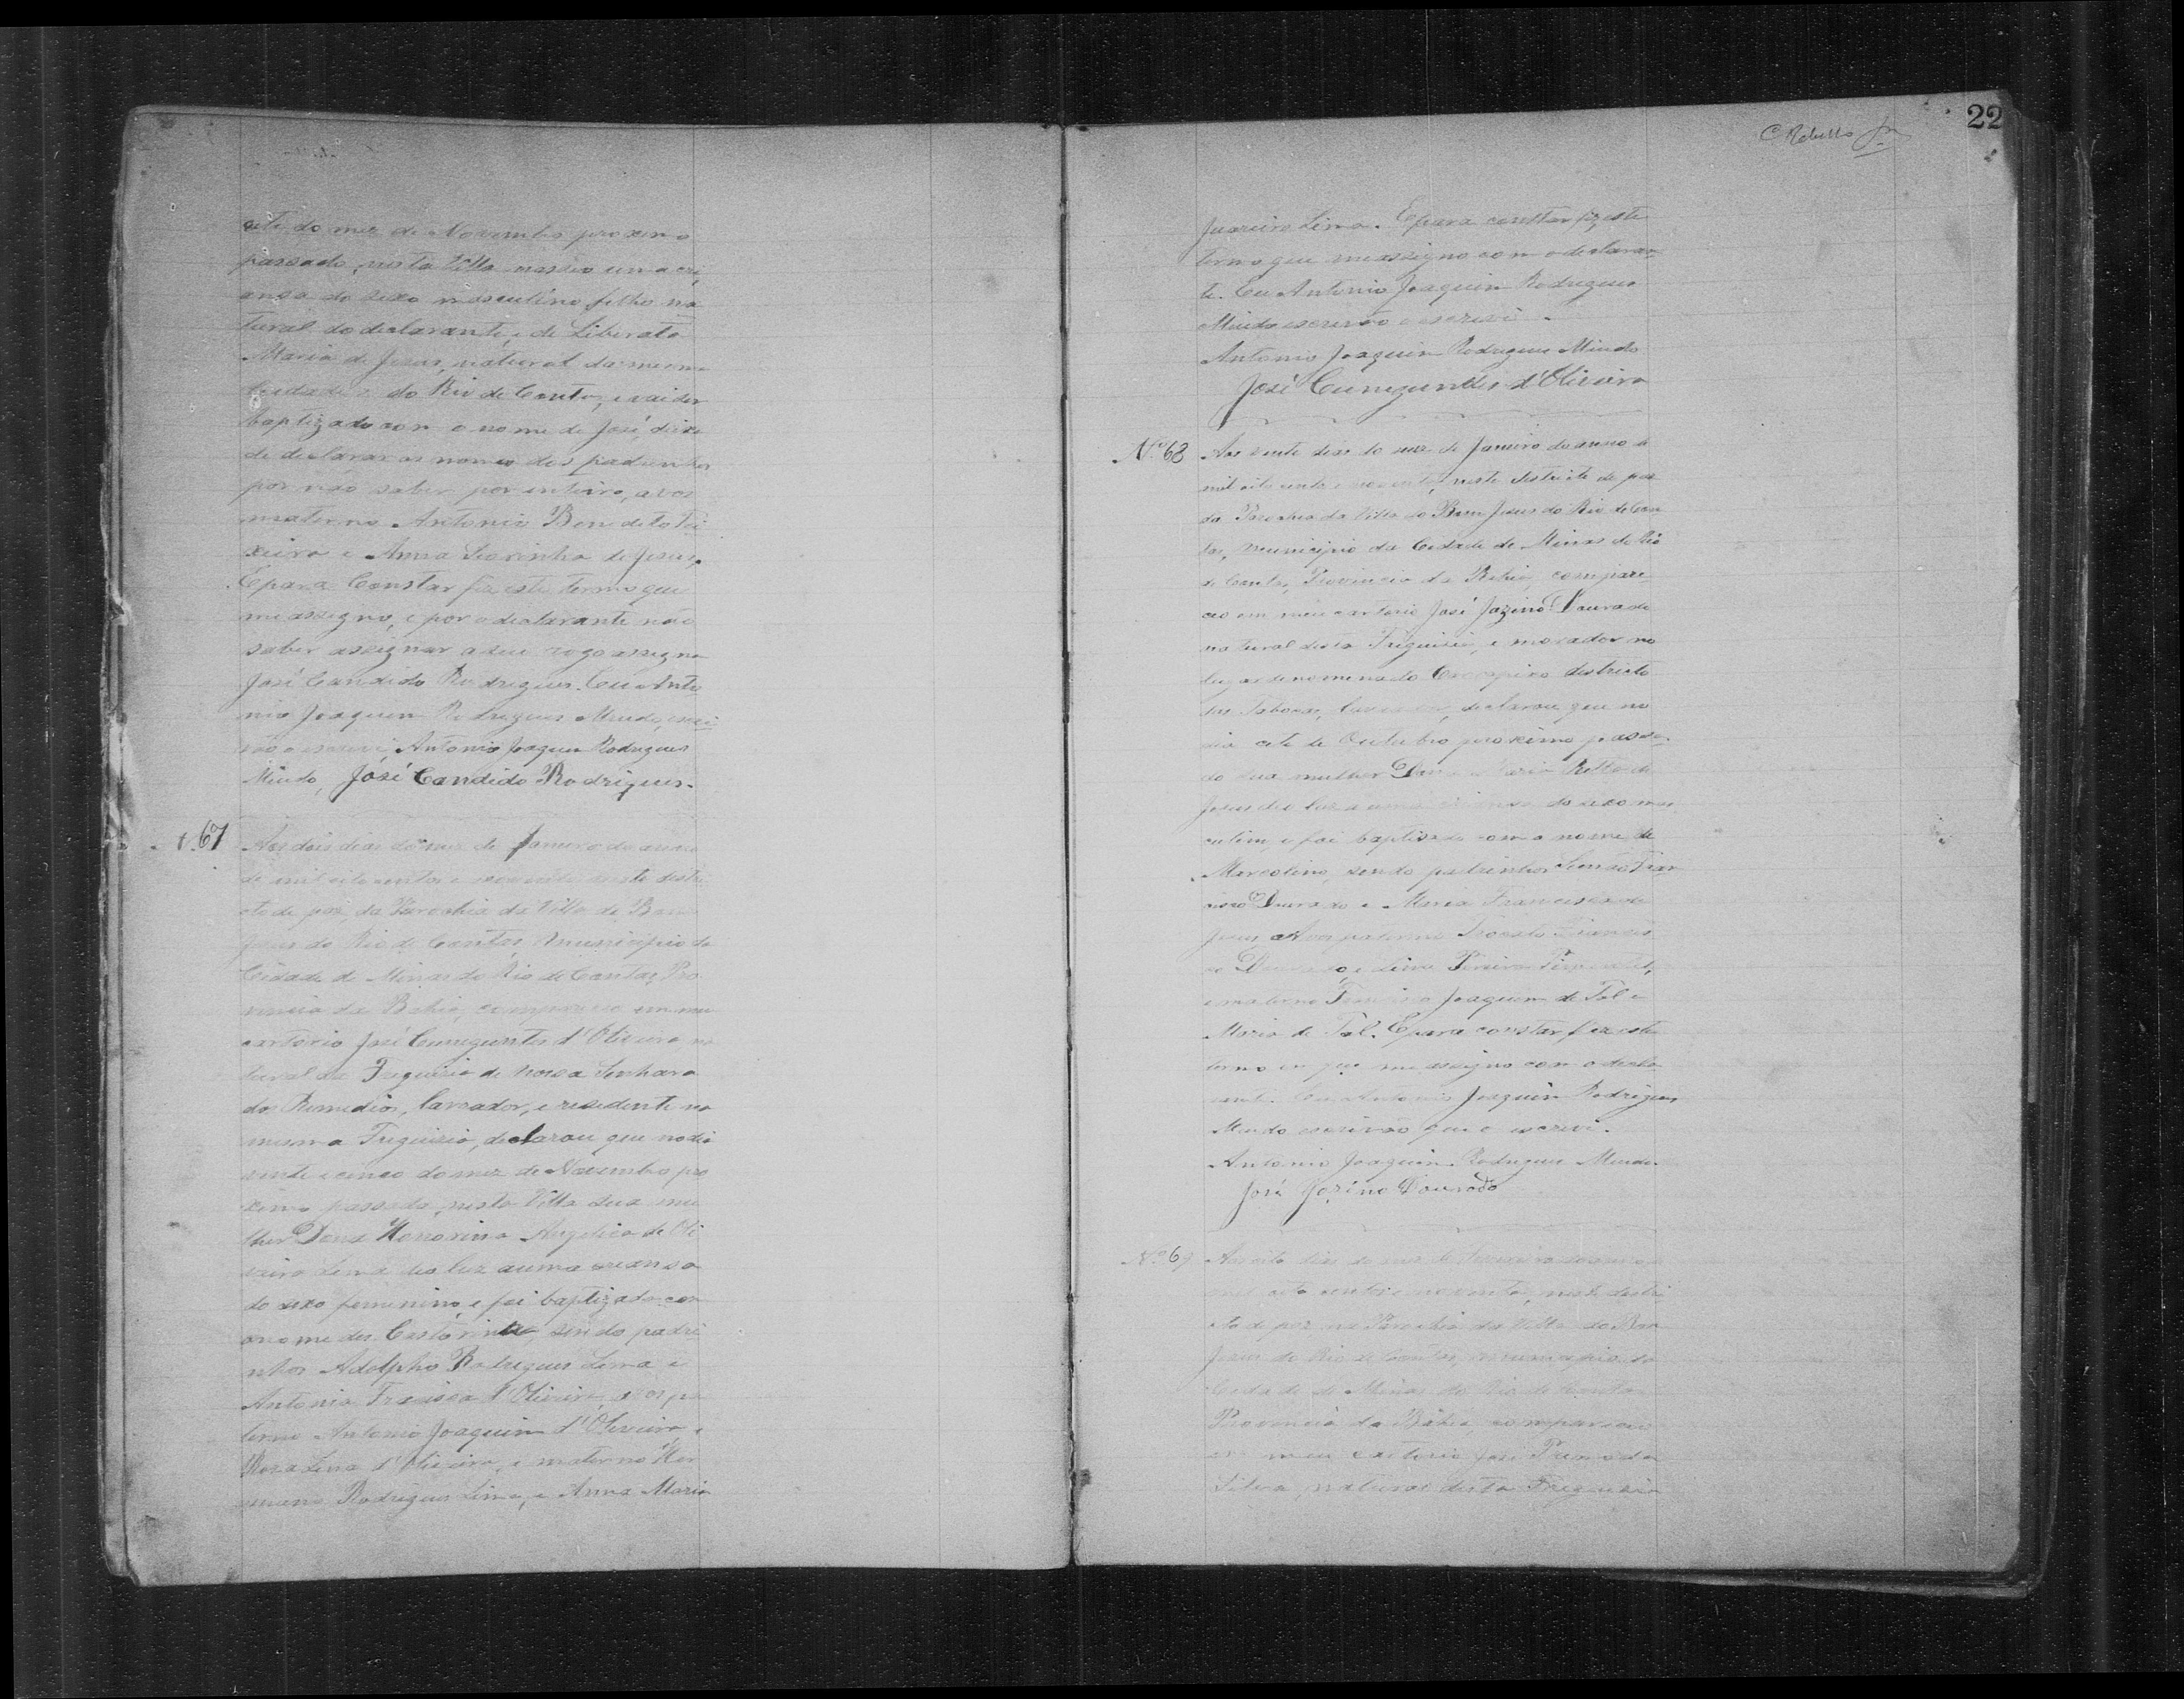 22
C Rebello Jr
sete do mez de Novembro proximo
passado, nesta Villa nasceu uma cri
ansa do sexo masculino filho na
tural do declarante, e de Liberata
Maria de Jesus, natural da mesma
Cidade do Rio de Contas, e vai ser
baptizado com o nome de José, deixa
de declarar os nomes dos padrinhos
por não saber por inteiro, avos
materno Antonio Benedeto Tei
xeira e Anna Liorinha de Jesus.
E para Constar fiz este termo que
me assigno, e por o declarante não
saber assignar a seu rogo assigna
José Candido Rodrigues. Eu Anto
nio Joaquim Rodrigues Miudo, escri
vão o escrevi, Antonio Joaquim Rodrigues
Miudo, José Candido Rodrigues.
N. 67
Aos dois dias do mez de Janeiro do anno
de mil oito centos e noventa neste destri
cto de paz, da Parochia da Villa do Bom
Jesus do Rio de Contas, municipio da
Cidade de Minas do Rio de Contas, Pro
vincia da Bahia, compareceo em meu
cartorio José Cunegundes d'Oliveira na
tural da Freguisia de Nossa Senhora
dos Remedios, lavrador, e residente na
mesma Freguisia, declarou que no dia
vinte e cinco do mez de Novembro pro
ximo passado, nesta Villa sua mu
lher Dona Honorina Angelica de Oli
veira Lima deo luz a uma creansa
do sexo feminino, e foi baptizada com
o nome de Castorina sendo padri
nhos Adolpho Rodrigues Lima e
Antonia Francisca d'Oliveira, avos pa
terno Antonio Joaquim d'Oliveira, e
Rosa Lina d'Oliveira, e materno Her
mano Rodrigues Lima, e Anna Maria
Juazeiro Lima. E para constar fiz este
termo que me assigno com o declaran
te. Eu Antonio Joaquim Rodrigues
Miudo escrivão o escrevi.
Antonio Joaquim Rodrigues Miudo
José Cunegundes d'Oliveira
Nº 68
Aos vinte dias do mez de Janeiro do anno de
mil oito cento e noventa, neste destricto de paz
da Parochia da Villa do Bom Jesus do Rio de Con
tas, municipio da Cidade de Minas do Rio
de Contas, Provincia da Bahia, compare
ceo em meu cartorio José Jazino Dourado
natural desta Freguisia, e morador no
lugar denomenado districto
das Taboas, lavrador, declarou que no
dia sete de Outubro proximo passa
do sua mulher Dona Maria Ritta de
Jesus deo luz a uma criansa do sexo mas
culino, e foi baptisado com o nome de
Marcolino, sendo padrinhos Simão Fran
cisco Dourado e Maria Francisca de
Jesus, Avos paterno Francis
co Dourado, e Pereira
e materno Joaquim de Tal e
Maria de Tal. E para constar fiz este
termo em que me assigno com o decla
rante. Eu Antonio Joaquim Rodrigues
Miudo escrivão que o escrevi.
Antonio Joaquim Rodrigues Miudo
José Jozino Dourado
Nº 69
Aos oito dias do mez de do anno de
mil oito centos e noventa, neste destri
cto de paz na Parochia da Villa do Bom
Jesus do Rio de Contas, municipio da
Cidade de Minas do Rio de Contas
Provincia da Bahia, compareceo
em meu cartorio José da
Silva, natural desta Freguisia